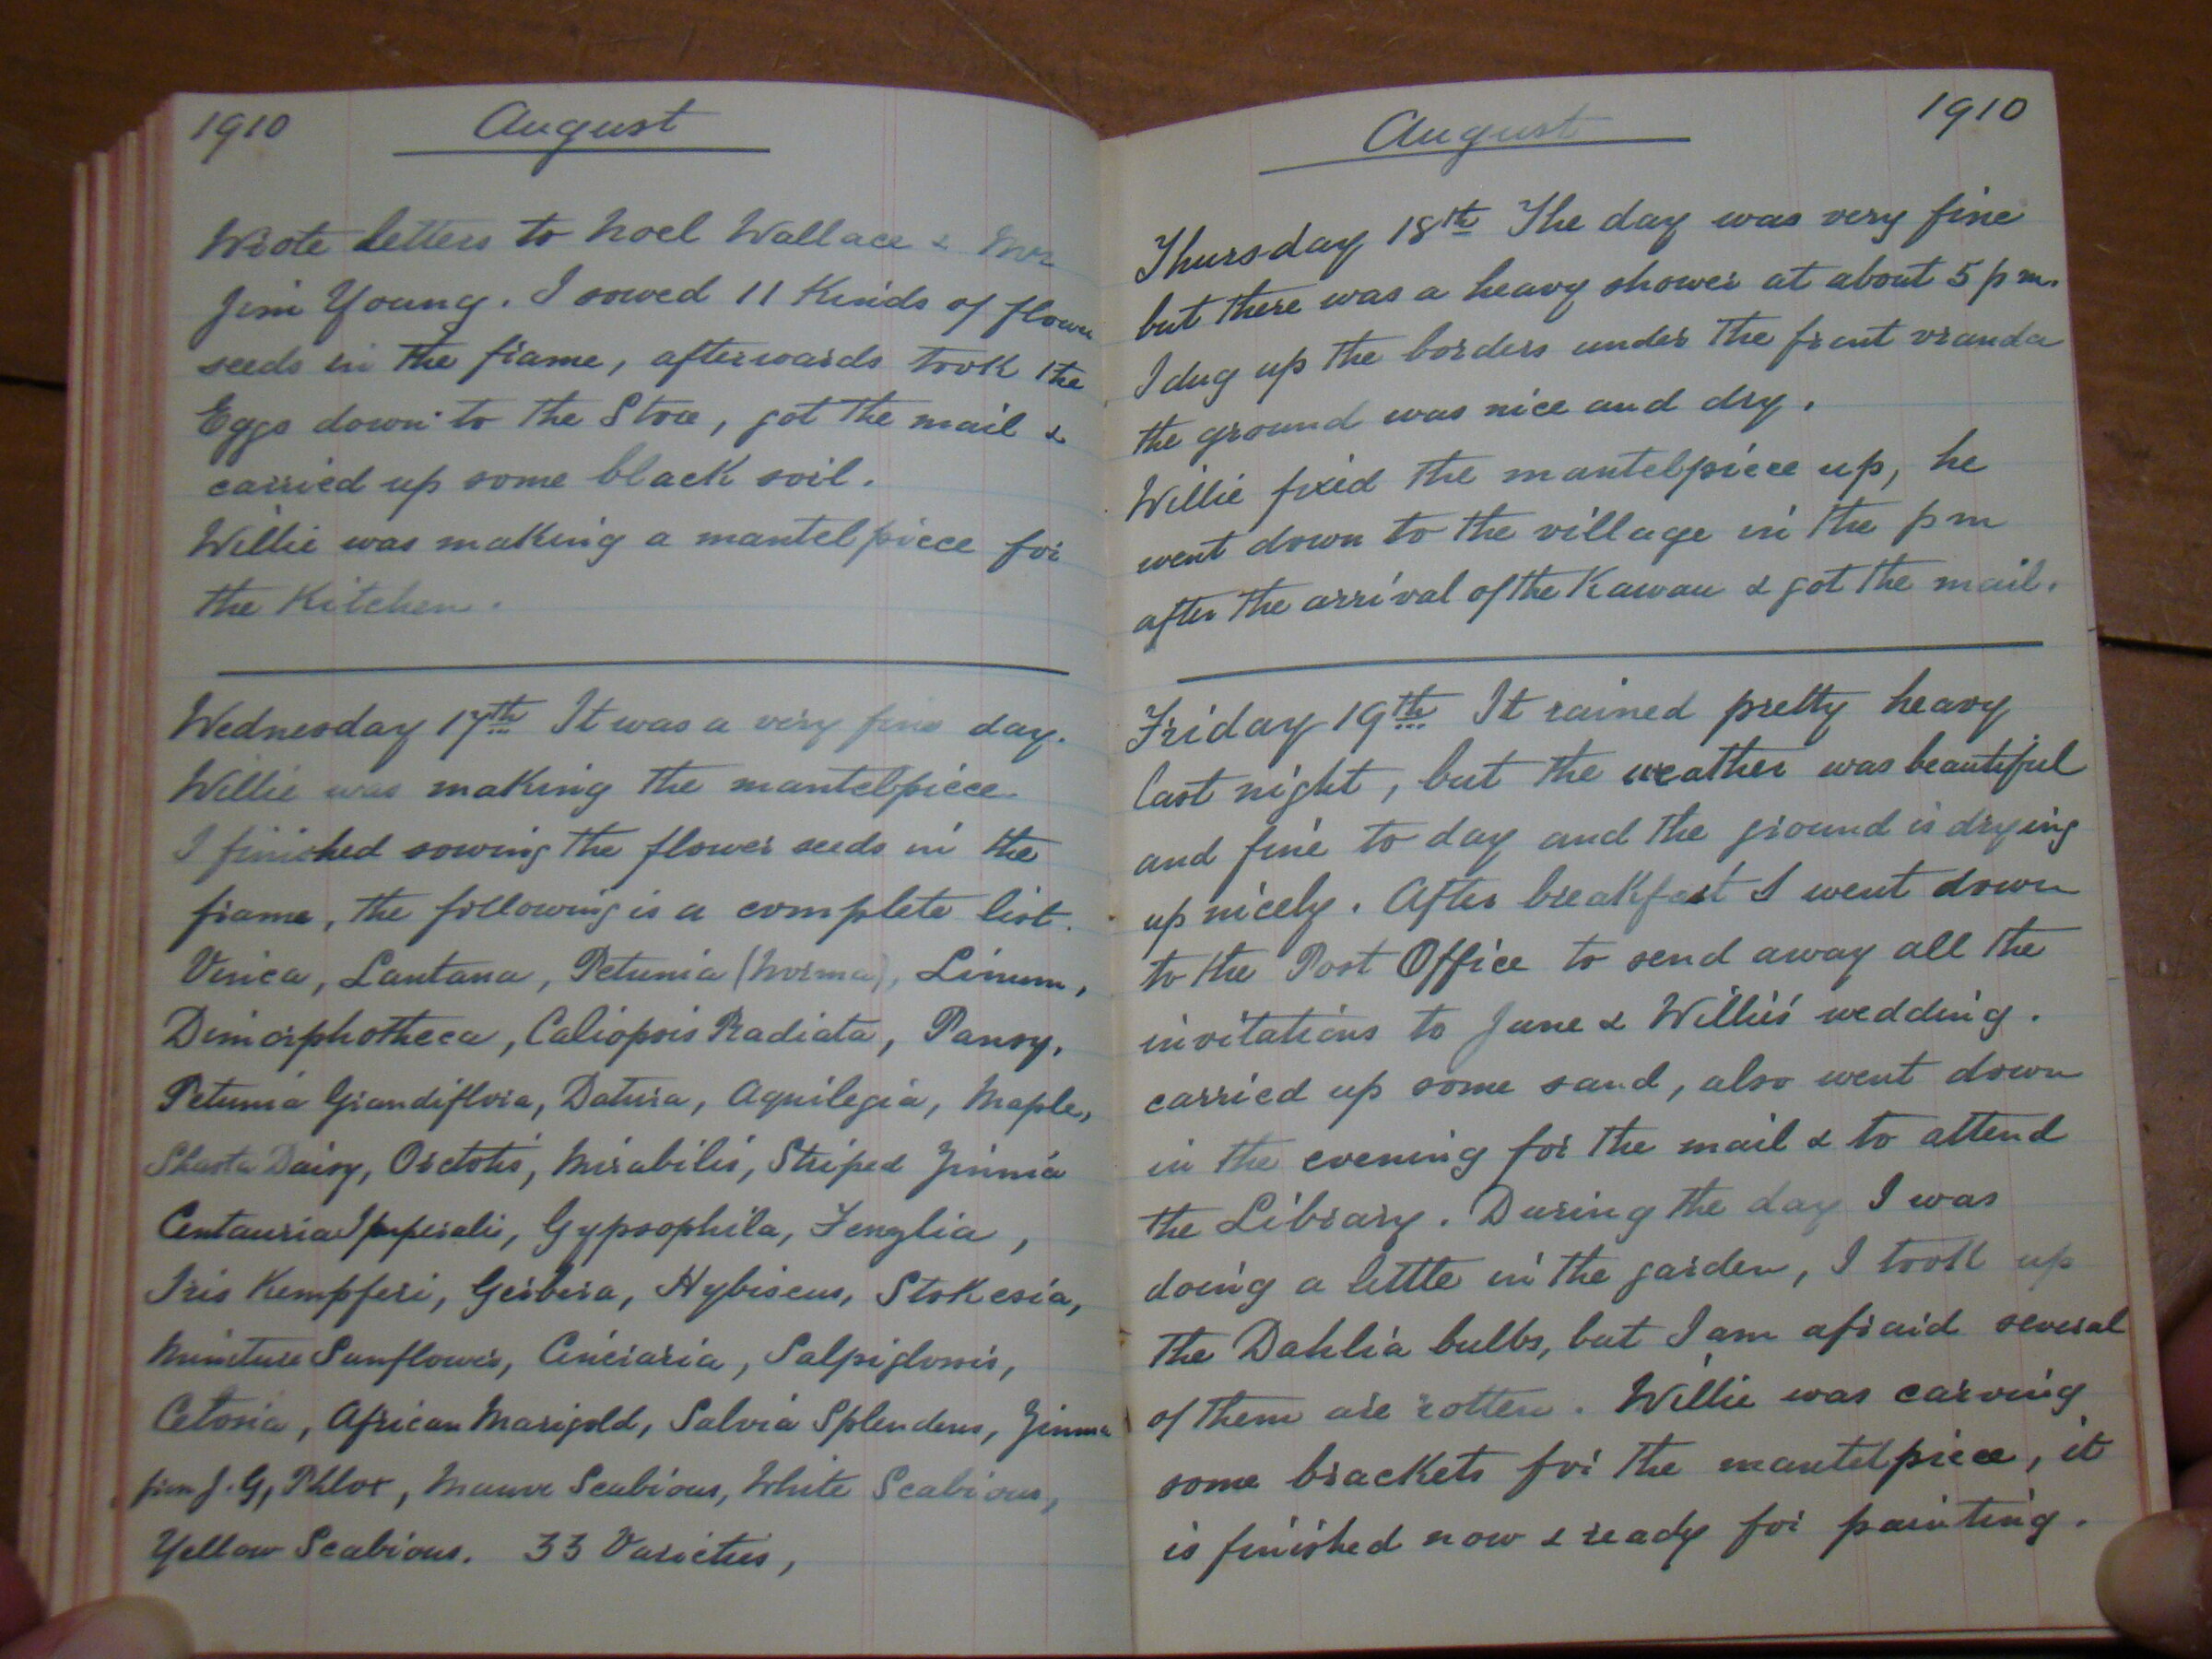 1910 August
Wrote letters to Noel Wallace & Mrs
Jim Young. I sowed 11 Kinds of flower
seeds in the frame, afterwards took the
Eggs down to the Store, got the mail &
carried up some black soil.
Willie was making a mantelpiece for
the Kitchen.
Wednesday 17th It was a very fine day.
Willie was making the mantelpiece.
I finished sowing the flower seeds in the
frame, the following is a complete list.
Vinca, Lantana, Petunia (Norma), Linum,
Dimorphotheca, Caliopsis Radiata, Pansy,
Petunia Grandiflora, Datura, Aquilegia, Maple,
Shasta Daisy, Orctotis, Mirabilis, Striped Zinnia
Centauria Imperalis, Gypsophila, Fenzlia,
Iris Kempferi, Gerbera, Hybiscus, Stokesia,
Miniture Sunflower, Cineraria, Salpiglossis,
Celosia, African Marigold, Salvia Splendens, Zinnia
from J.G, Phlox, Mauve Scabious, White Scabious,
Yellow Scabious. 33 Varieties,
August 1910
Thursday 18th The day was very fine
but there was a heavy shower at about 5 pm.
I dug up the borders under the front vranda
the ground was nice and dry.
Willie fixed the mantelpiece up, he
went down to the village in the pm
after the arrival of the Kawau & got the mail.
Friday 19th It rained pretty heavy
last night, but the weather was beautiful
and fine to day and the ground is drying
up nicely. After breakfast I went down
to the Post Office to send away all the
invitations to June & Willie's wedding.
carried up some sand, also went down
in the evening for the mail & to attend
the Library. During the day I was
doing a little in the garden, I took up
the Dahlia bulbs, but I am afraid several
of them are rotten. Willie was carving
some brackets for the mantelpiece, it
is finished now & ready for painting.